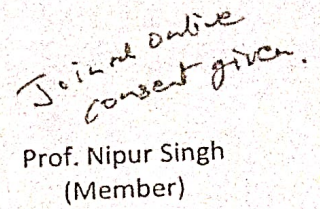 Joined online
consent given.
Prof. Nipur Singh
(Member)